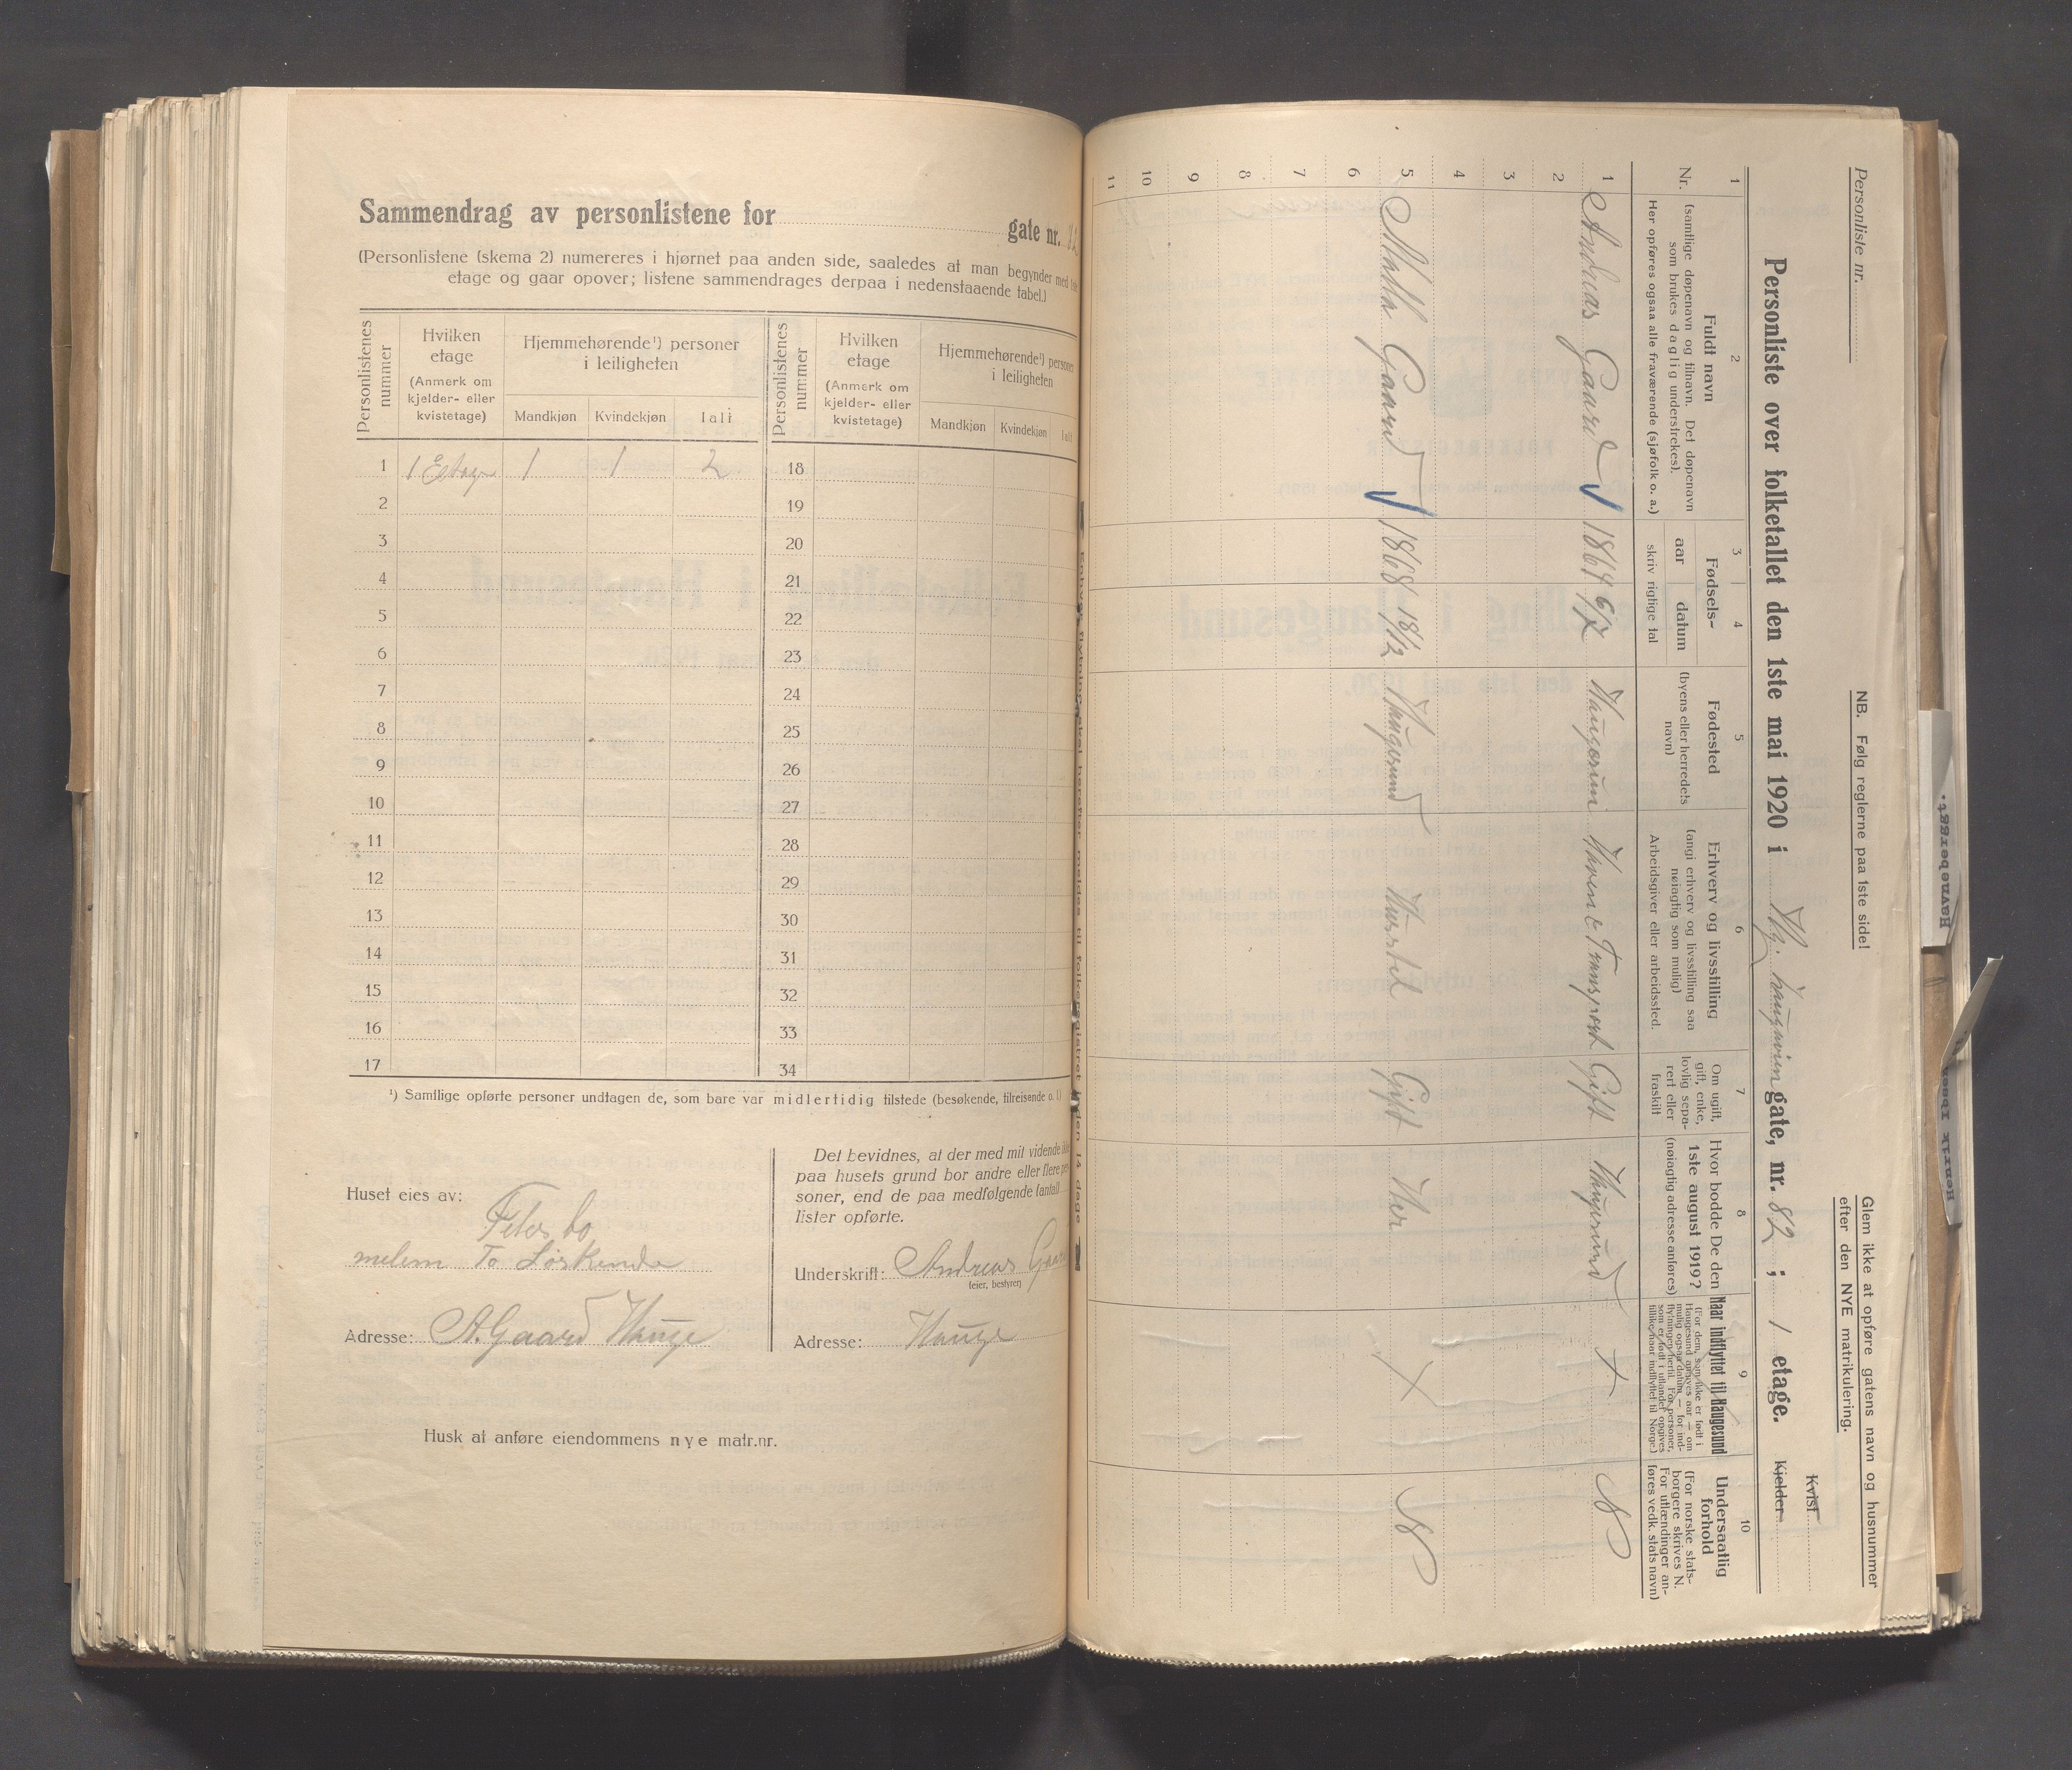 Sammendrag av personlistene for
gate nr. 82
(Personlistene (skema 2) numereres i hjørnet paa anden side, saaledes at man begynder med 1ste
etage og gaar opover; listene sammendrages derpaa i nedenstaaende tabel.)
Personlistenes nummer
Hvilken etage (Anmerk om kjelder- eller kvistetage)
Hjemmehørende¹) personer i leiligheten
Mandkjøn Kvindekjøn Ialt
Personlistenes nummer
Hvilken etage (Anmerk om kjelder- eller kvistetage)
Hjemmehørende¹) personer i leiligheten
Mandkjøn Kvindekjøn Ialt
1 1 Etage 1 1 2 18
2 19
3 20
4 21
5 22
6 23
7 24
8 25
9 26
10 27
11 28
12 29
13 30
14 31
15 32
16 33
17 34
¹) Samtlige opførte personer undtagen de, som bare var midlertidig tilstede (besøkende, tilreisende o. l.)
Huset eies av:
melem To Søskende
Adresse: A. Gaard Hauge
Det bevidnes, at der med mit vidende ikke
paa husets grund bor andre eller flere per-
soner, end de paa medfølgende (antal)
lister opførte.
Underskrift: Andreas Gaard
(eier, bestyrer)
Adresse: Hauge
Husk at anføre eiendommens nye matr.nr.
Enhver flytning skal herefter meldes til folkeregistret inden 14 dage
Personliste nr.
NB. Følg reglerne paa 1ste side!
Glem ikke at opføre gatens navn og husnummer
efter den NYE matrikulering.
Personliste over folketallet den 1ste mai 1920 i gate, nr. 82 ; 1 etage.
Kvist
Kjelder
1 2 3 4 5 6 7 8 9 10
Nr.
Fuldt navn
(samtlige døpenavn og tilnavn. Det døpenavn
som brukes daglig understrekes).
Her opføres ogsaa alle fraværende (sjøfolk o. a.)
Fødsels-
aar datum
skriv rigtige tal
Fødested
(byens eller herredets
navn)
Erhverv og livsstilling
(angi erhverv og livsstilling saa
nøiagtig som mulig)
Arbeidsgiver eller arbeidssted.
Om ugift,
gift, enke,
lovlig sepa-
rert eller
fraskilt
Hvor bodde De den
1ste august 1919?
(nøiagtig adresse anføres)
Naar indflyttet til Haugesund
(For dem, som ikke er født i
Haugesund angives aar — om
mulig ogsaa datum — for ind-
flytningen hertil. For personer,
som er født i utlandet opgives
tillike naar indflyttet til Norge.)
Undersaatlig
forhold
(For norske stats-
borgere skrives N.
For utlændinger an-
føres vedk. stats navn)
1 Andreas Gaard 1864 6/7 Haugesun Transport Gift Haugesund + N
2
3
4
5 Martha Gaard 1868 18/2 Haugesund Husstel Gift Her + N
6
7
8
9
10
11
Havnebergsgt.
Henrik Ibsens